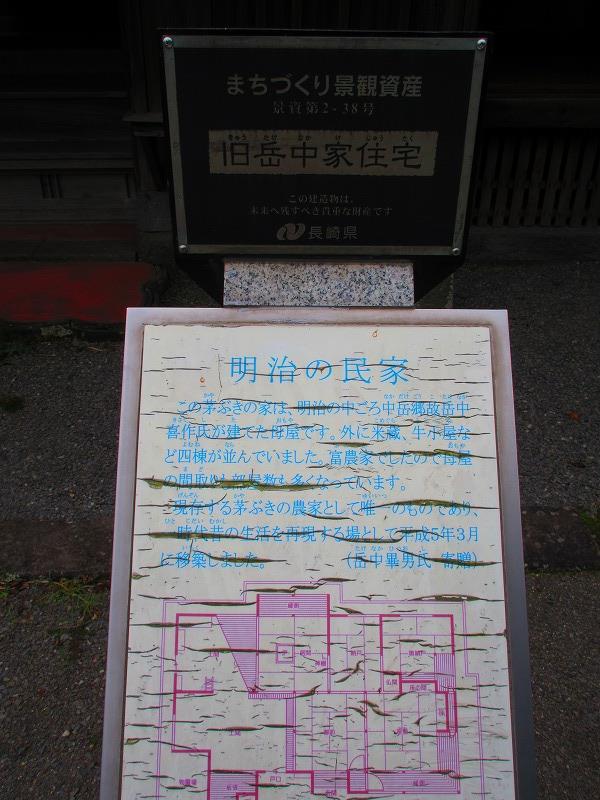 まちづくり景観資産
景資第2-38号
きゅう たけ なか け じゅう たく
旧岳中家住宅
この建造物は、
未来へ残すべき貴重な財産です
長崎県
明治の民家
この茅ぶきの家は、明治の中ごろ中岳郷故岳中
喜作氏が建てた母屋です。外に米蔵、牛小屋な
ど四棟が並んでいました。富農家でしたので母屋
の間取りも部屋数も多くなっています。
現存する茅ぶきの農家として唯一のものであり、
一時代昔の生活を再現する場として平成5年3月
に移築しました。 (岳中畢男氏 寄贈)
縁側
納戸
神棚
仏間
床の間
土間
戸口
縁側